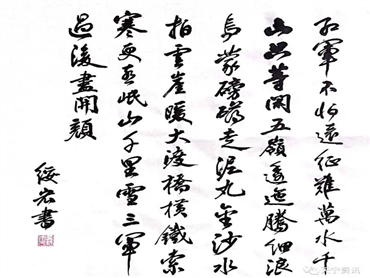 紅軍不怕遠征難萬水千
山只等閑五嶺逶迤騰細浪
烏蒙磅礴走泥丸金沙水
拍雲崖暖大渡橋橫鐵索
寒更喜岷山千里雪三軍
過後盡開顏
綏宏書
资讯